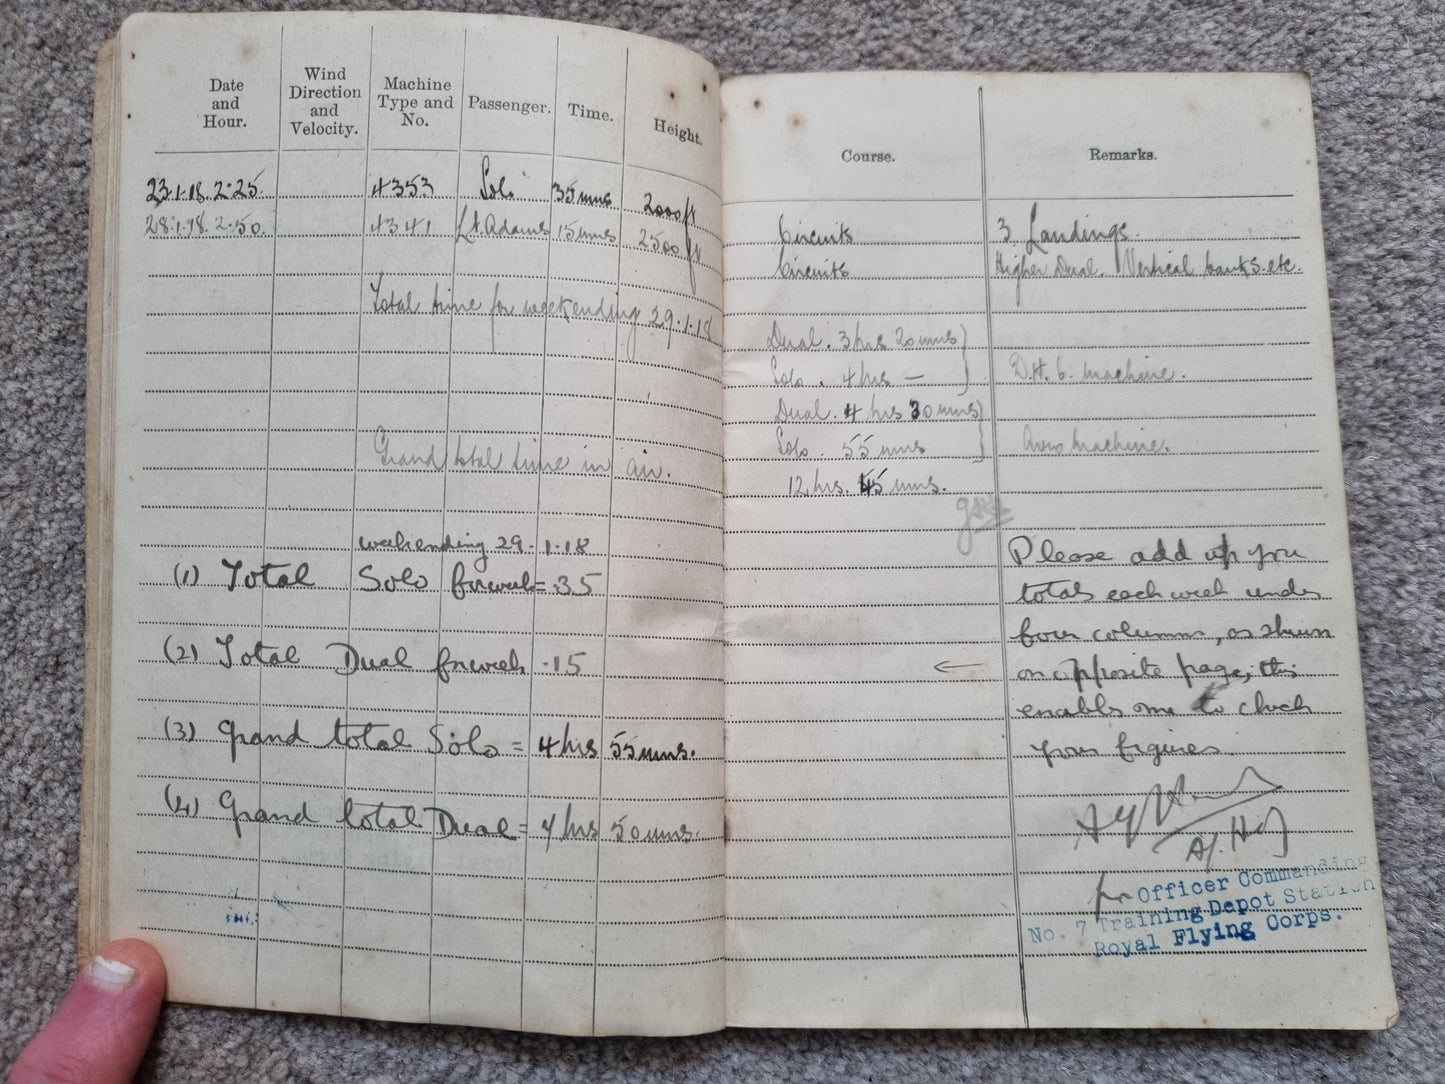 Date and Hour.
Wind Direction and Velocity.
Machine Type and No.
Passenger.
Time.
Height.
23.1.18. 2.25. 4353 Solo 35 mns 2000 ft
28.1.18. 2.50. 4341 Lt. Adams 15 mns 2500 ft
Total time for weekending 29.1.18
Grand total time in air.
weekending 29.1.18
(1) Total Solo for week = .35
(2) Total Dual for week .15
(3) Grand total Solo = 4 hrs 55 mns.
(4) Grand total Dual = 4 hrs 50 mns.
Course.
Remarks.
Circuits 3 Landings.
Circuits Higher Dual. Vertical banks. etc.
Dual. 3 hrs 20 mns
Solo. 4 hrs — D.H. 6. machine.
Dual. 4 hrs 30 mns
Solo. 55 mns Avro machine.
12. hrs. 45 mns.
Please add up you
totals each week under
four columns, as shewn
← on opposite page, this
enables me to check
your figures
for Officer Commanding
No. 7 Training Depot Station
Royal Flying Corps.